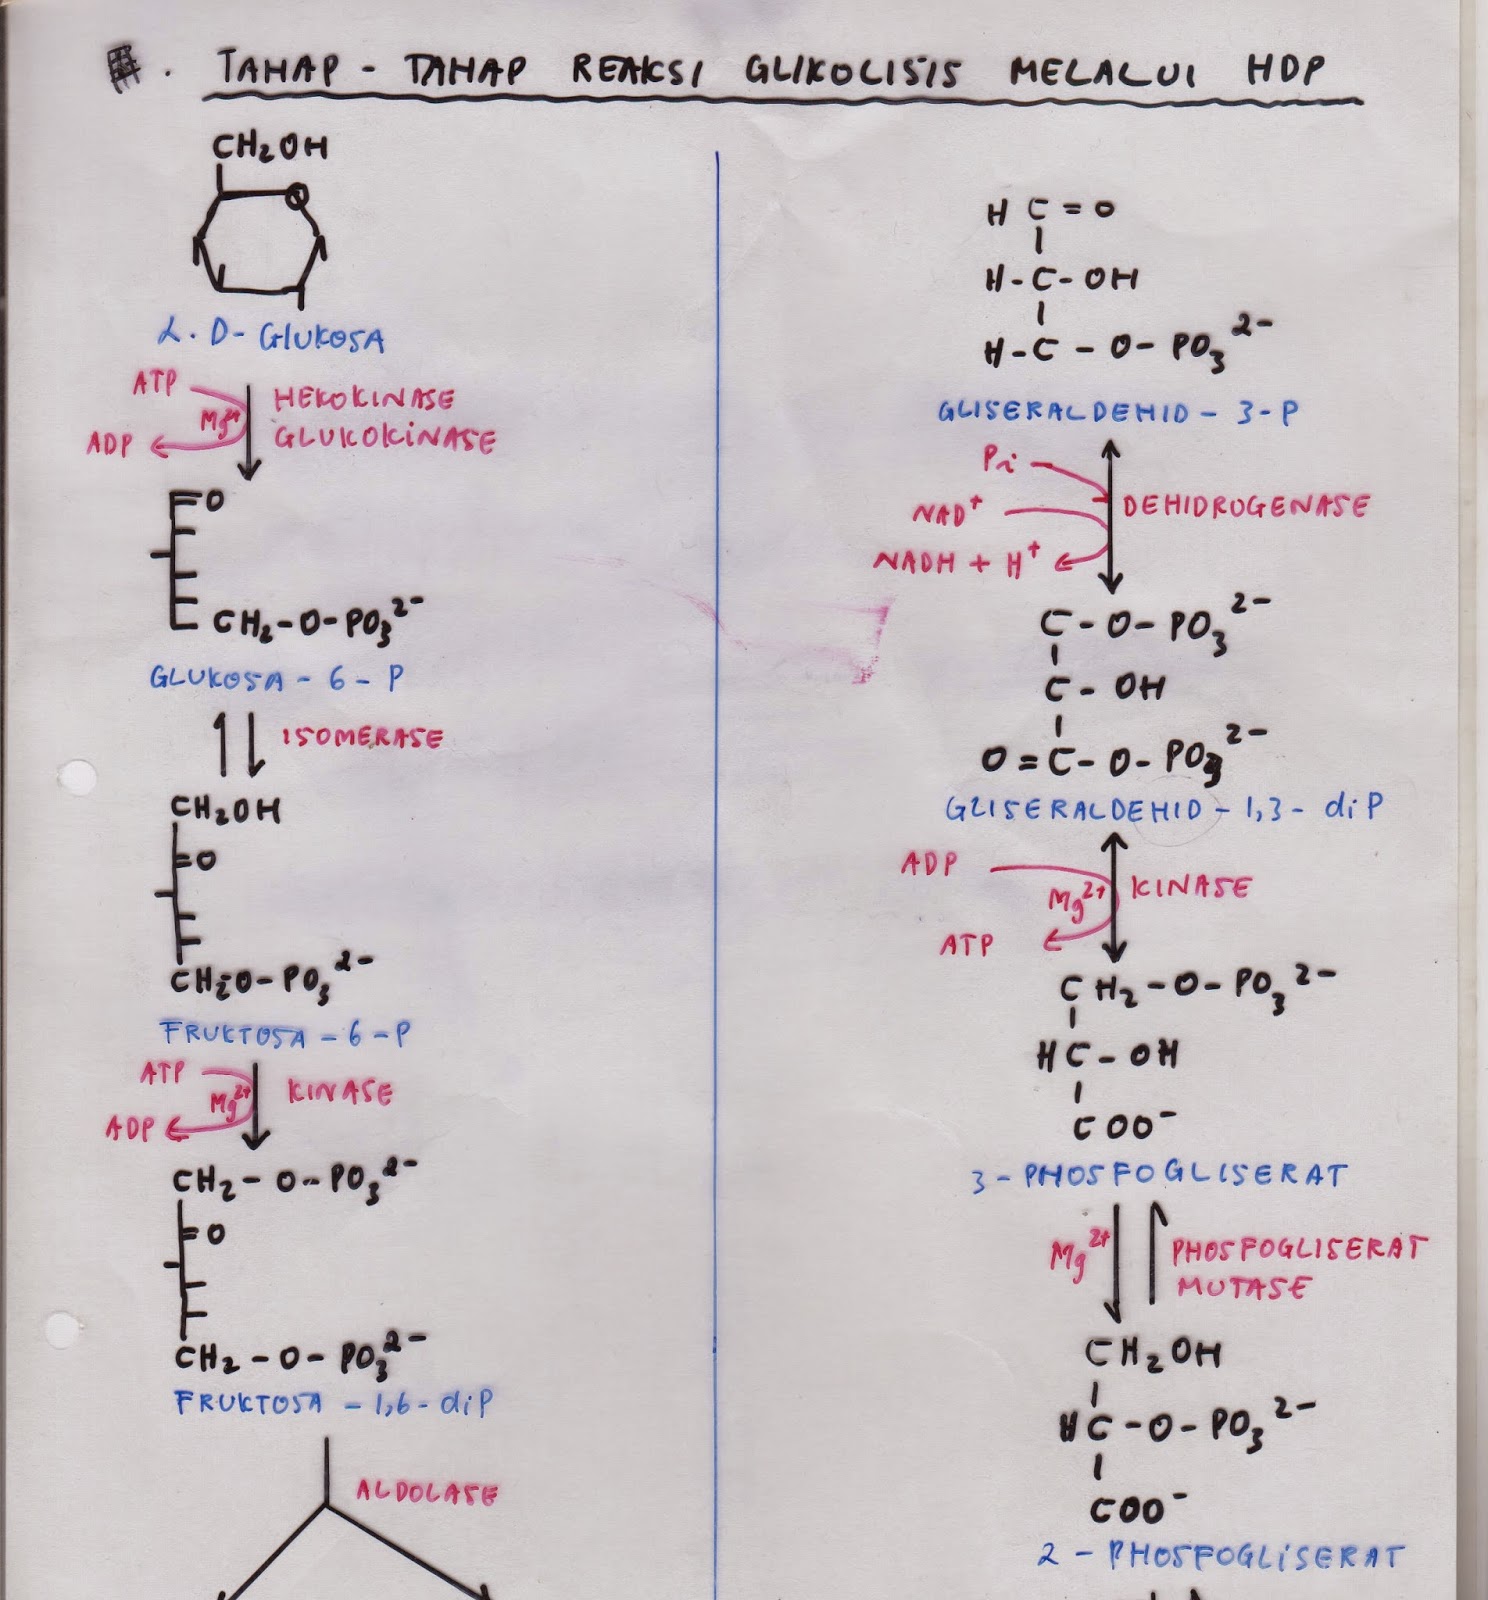 TAHAP - TAHAP REAKSI GLIKOLISIS MELALUI HDP
CH2OH
O
α. D - GLUKOSA
ATP
Mg2+
ADP
HEKOKINASE
GLUKOKINASE
=O
CH2-O-PO3 2-
GLUKOSA - 6 - P
ISOMERASE
CH2OH
=O
CH2-O-PO3 2-
FRUKTOSA - 6 - P
ATP
Mg2+
ADP
KINASE
CH2-O-PO3 2-
=O
CH2-O-PO3 2-
FRUKTOSA - 1,6 - diP
ALDOLASE
HC=O
H-C-OH
H-C-O-PO3 2-
GLISERALDEHID - 3 - P
Pi
NAD+
NADH + H+
DEHIDROGENASE
C-O-PO3 2-
C-OH
O=C-O-PO3 2-
GLISERALDEHID - 1,3 - diP
ADP
Mg2+
ATP
KINASE
CH2-O-PO3 2-
HC-OH
COO-
3 - PHOSFOGLISERAT
Mg2+
PHOSFOGLISERAT
MUTASE
CH2OH
HC-O-PO3 2-
COO-
2 - PHOSFOGLISERAT